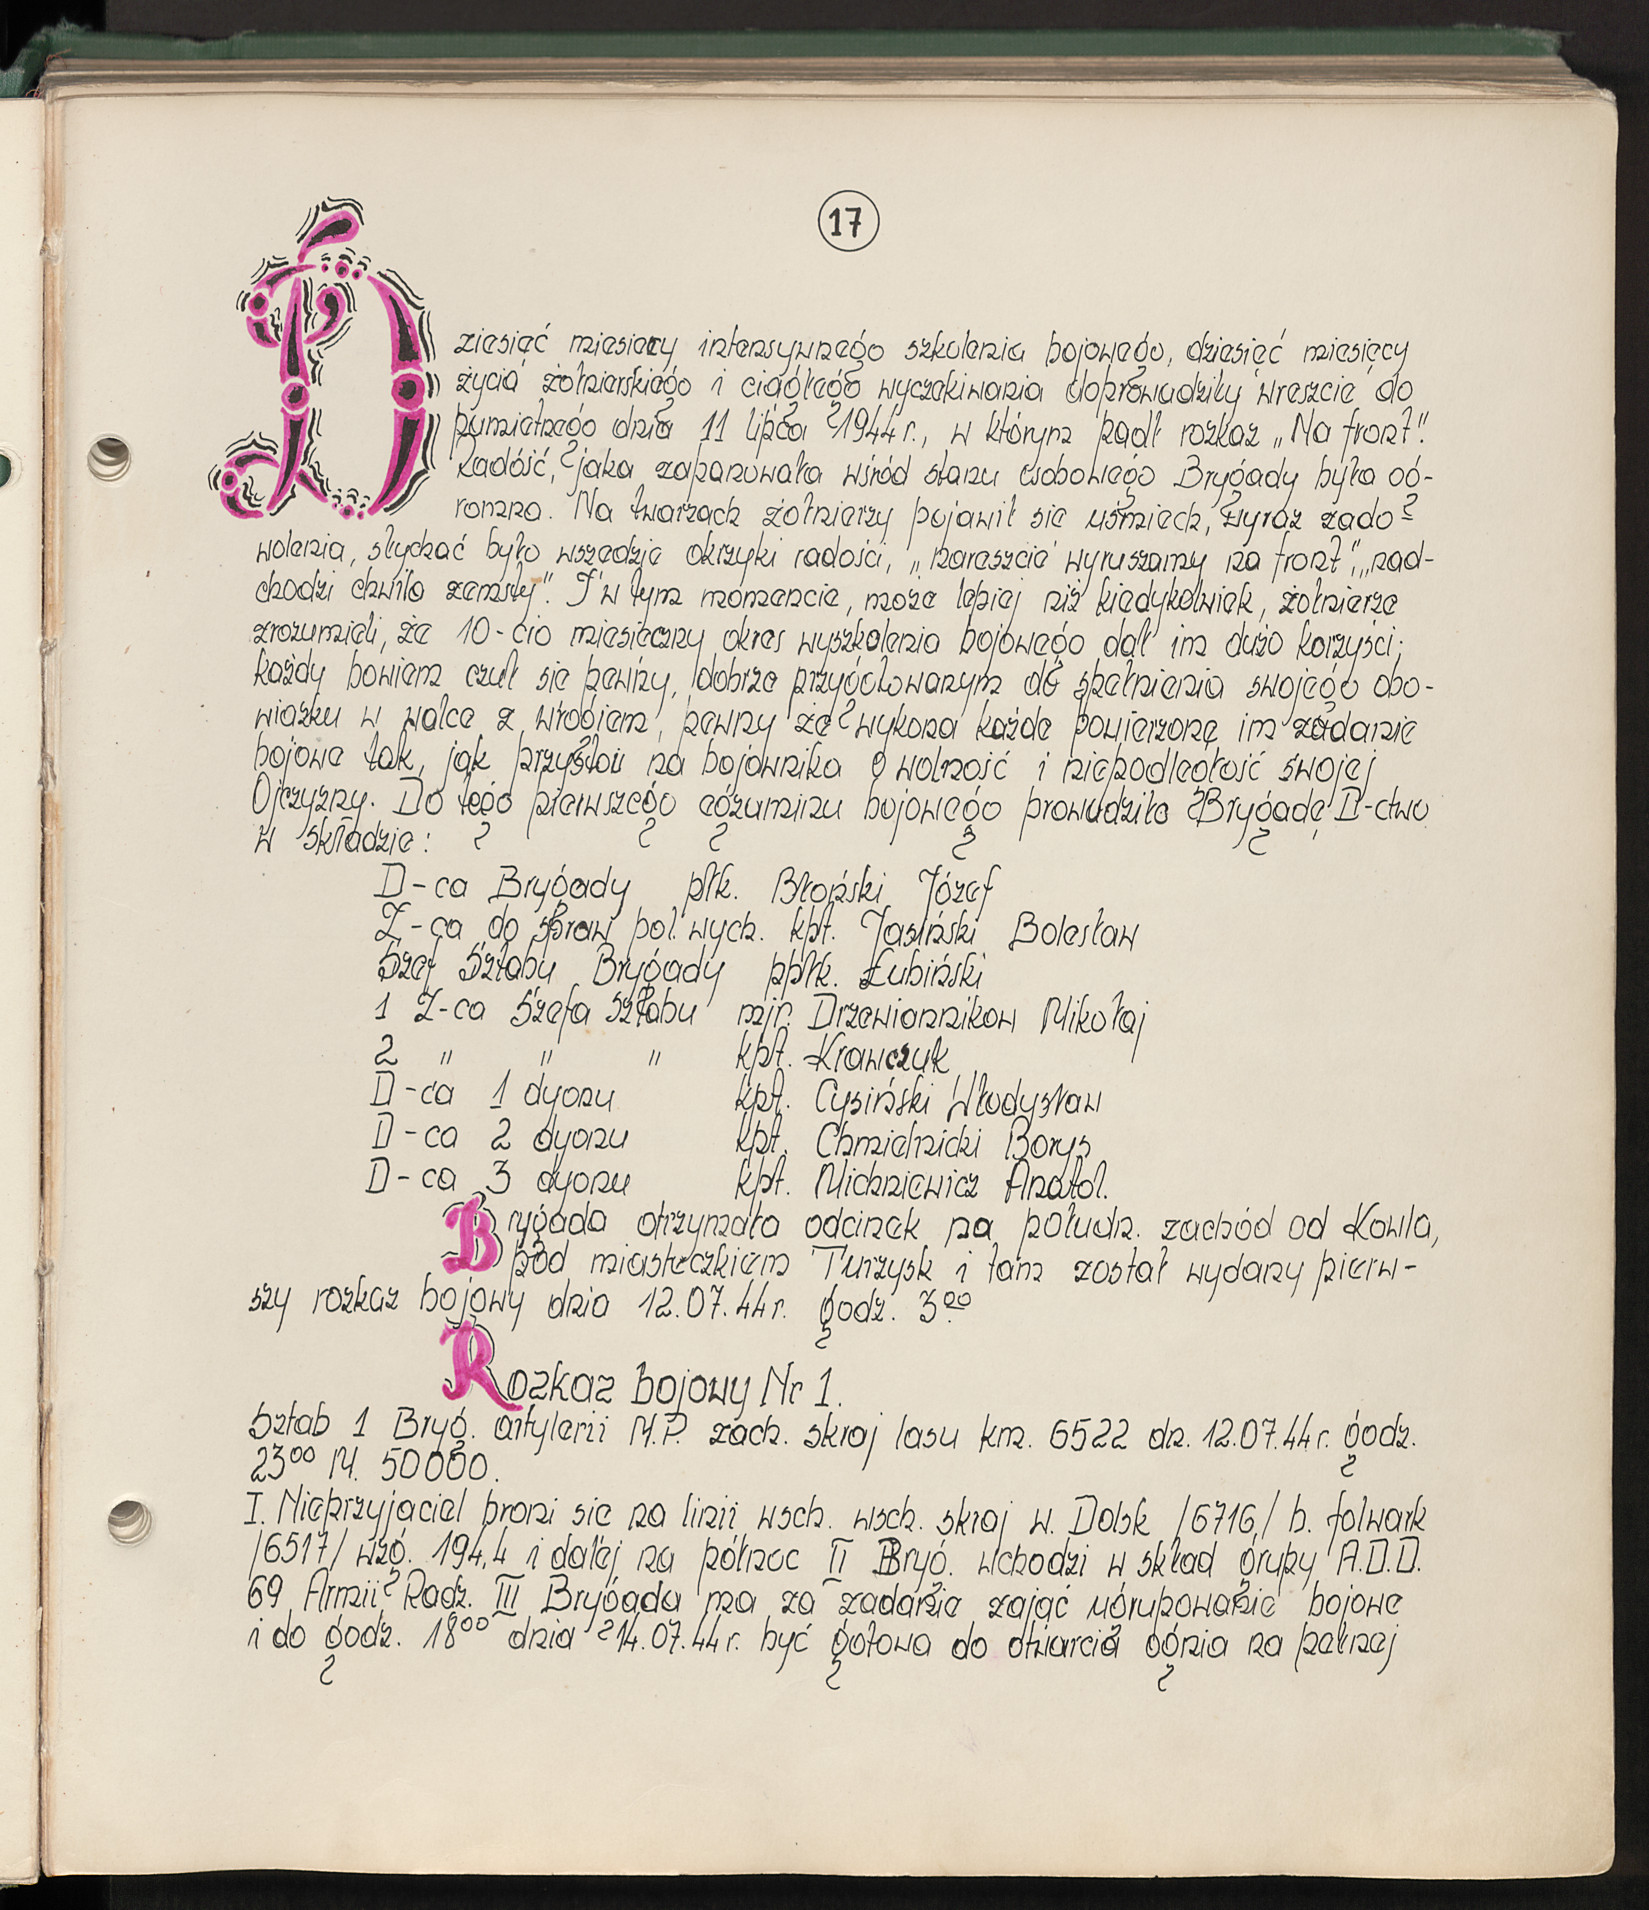 17
Dziesięć miesięcy intensywnego szkolenia bojowego, dziesięć miesięcy
życia żołnierskiego i ciągłego wyczekiwania doprowadziły wreszcie do
pamiętnego dnia 11 lipca 1944 r., w którym padł rozkaz „Na front".
Radość, jaka zapanowała wśród stanu osobowego Brygady była og-
romna. Na twarzach żołnierzy pojawił się uśmiech, wyraz zado-
wolenia, słychać było wszędzie okrzyki radości, „nareszcie wyruszamy na front", „nad-
chodzi chwila zemsty". I w tym momencie, może lepiej niż kiedykolwiek, żołnierze
zrozumieli, że 10-cio miesięczny okres wyszkolenia bojowego dał im dużo korzyści;
każdy bowiem czuł się pewny, dobrze przygotowanym do spełnienia swojego obo-
wiązku w walce z wrogiem, pewny że wykona każde powierzone im zadanie
bojowe tak, jak przystoi na bojownika o wolność i niepodległość swojej
Ojczyzny. Do tego pierwszego egzaminu bojowego prowadziło Brygadę D-ctwo
w składzie:
D-ca Brygady płk. Błoński Józef
Z-ca do spraw pol. wych. kpt. Jasiński Bolesław
Szef Sztabu Brygady ppłk. Łubiński
1 Z-ca Szefa Sztabu mjr. Drzewiannikow Mikołaj
2 " " " kpt. Krawczuk
D-ca 1 dyonu kpt. Cysiński Władysław
D-ca 2 dyonu kpt. Chmielnicki Borys
D-ca 3 dyonu kpt. Michniewicz Anatol.
Brygada otrzymała odcinek na połudn. zachód od Kowla,
pod miasteczkiem Turzysk i tam został wydany pierw-
szy rozkaz bojowy dnia 12.07.44r. godz. 3⁰⁰
Rozkaz bojowy Nr 1.
Sztab 1 Bryg. artylerii M.P. zach. skraj lasu km. 6522 dn. 12.07.44r. godz.
23⁰⁰ M. 50000.
I. Nieprzyjaciel broni się na linii wsch. wsch. skraj w. Dolsk /6716/ b. folwark
/6517/ wzg. 194,4 i dalej na północ II Bryg. wchodzi w skład grupy A.D.D.
69 Armii Radz. III Brygada ma za zadanie zająć ugrupowanie bojowe
i do godz. 18⁰⁰ dnia 14.07.44r. być gotowa do otwarcia ognia na pełnej